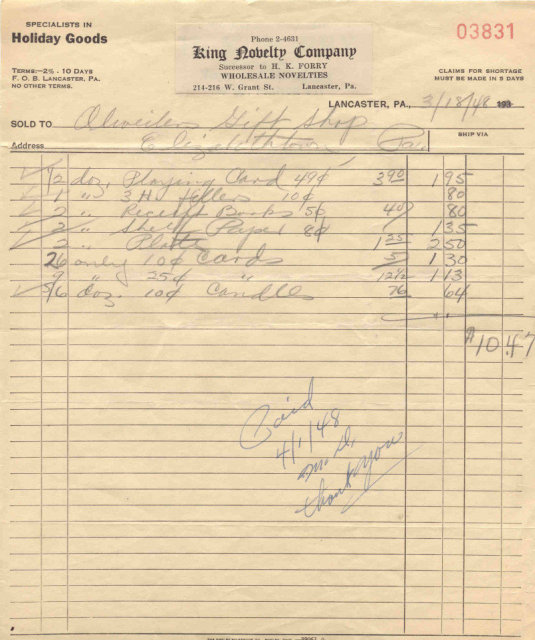 SPECIALISTS IN
Holiday Goods
TERMS:—2% - 10 DAYS
F. O. B. LANCASTER, PA.
NO OTHER TERMS.
Phone 2-4631
King Novelty Company
Successor to H. K. FORRY
WHOLESALE NOVELTIES
214-216 W. Grant St. Lancaster, Pa.
03831
CLAIMS FOR SHORTAGE
MUST BE MADE IN 5 DAYS
LANCASTER, PA., 3/18/48 193
SOLD TO Olweiler Gift Shop
SHIP VIA
Address Elizabethtown Pa
1/2 doz. Playing Card 49¢ 3 90 1 95
1 " 3 H fillers 10¢ 80
2 " Receipt Books 5¢ 40 80
2 " Shelf Paper 8¢ 1 35
2 " Plate 1 25 2 50
26 only 10¢ Cards 5 1 30
9 " 25¢ " 12 1/2 1 13
5/6 doz. 10¢ Candles 76 64
$10.47
Paid
4/1/48
thank you